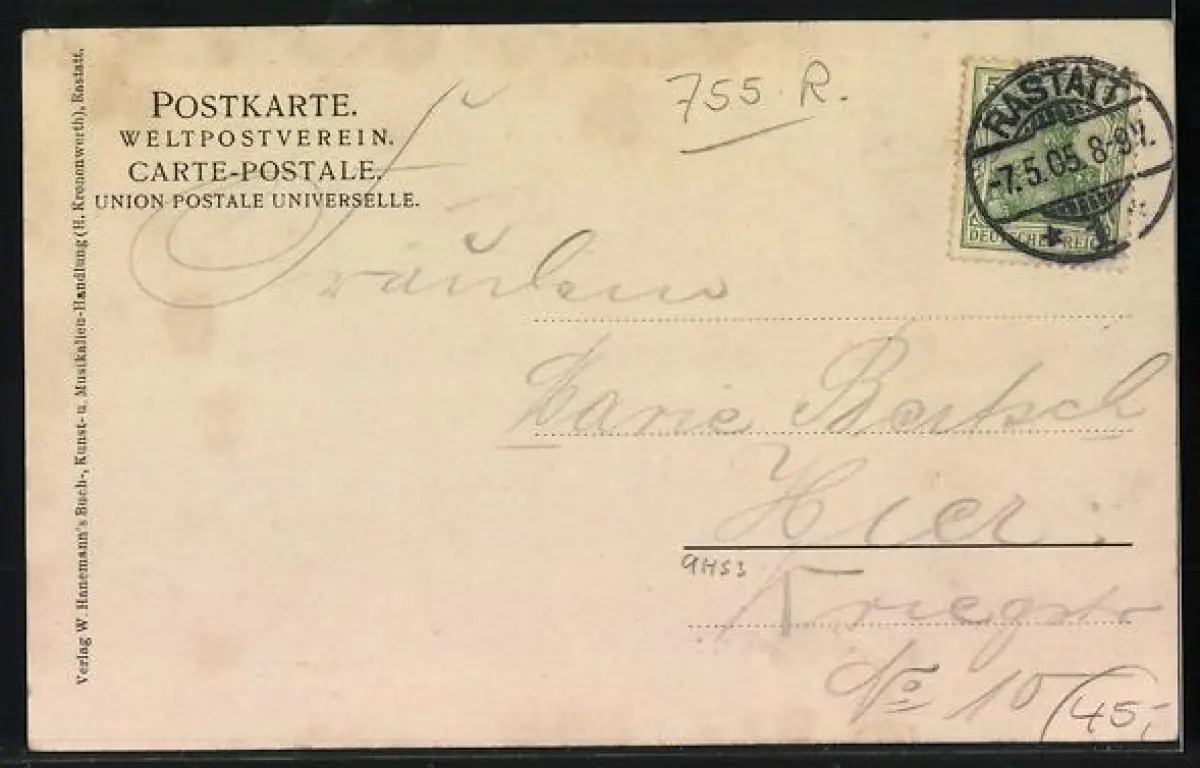 POSTKARTE.
WELTPOSTVEREIN.
CARTE-POSTALE.
UNION POSTALE UNIVERSELLE.
755. R.
RASTATT
-7.5.05. 8-9V.
* 1
DEUTSCHES REICH
Fräulein
Marie Bertsch
Hier:
9HS3
Kriegstr
No 10
(45,-
Verlag W. Hanemann's Buch-, Kunst- u. Musikalien-Handlung (H. Kronenwerth), Rastatt.